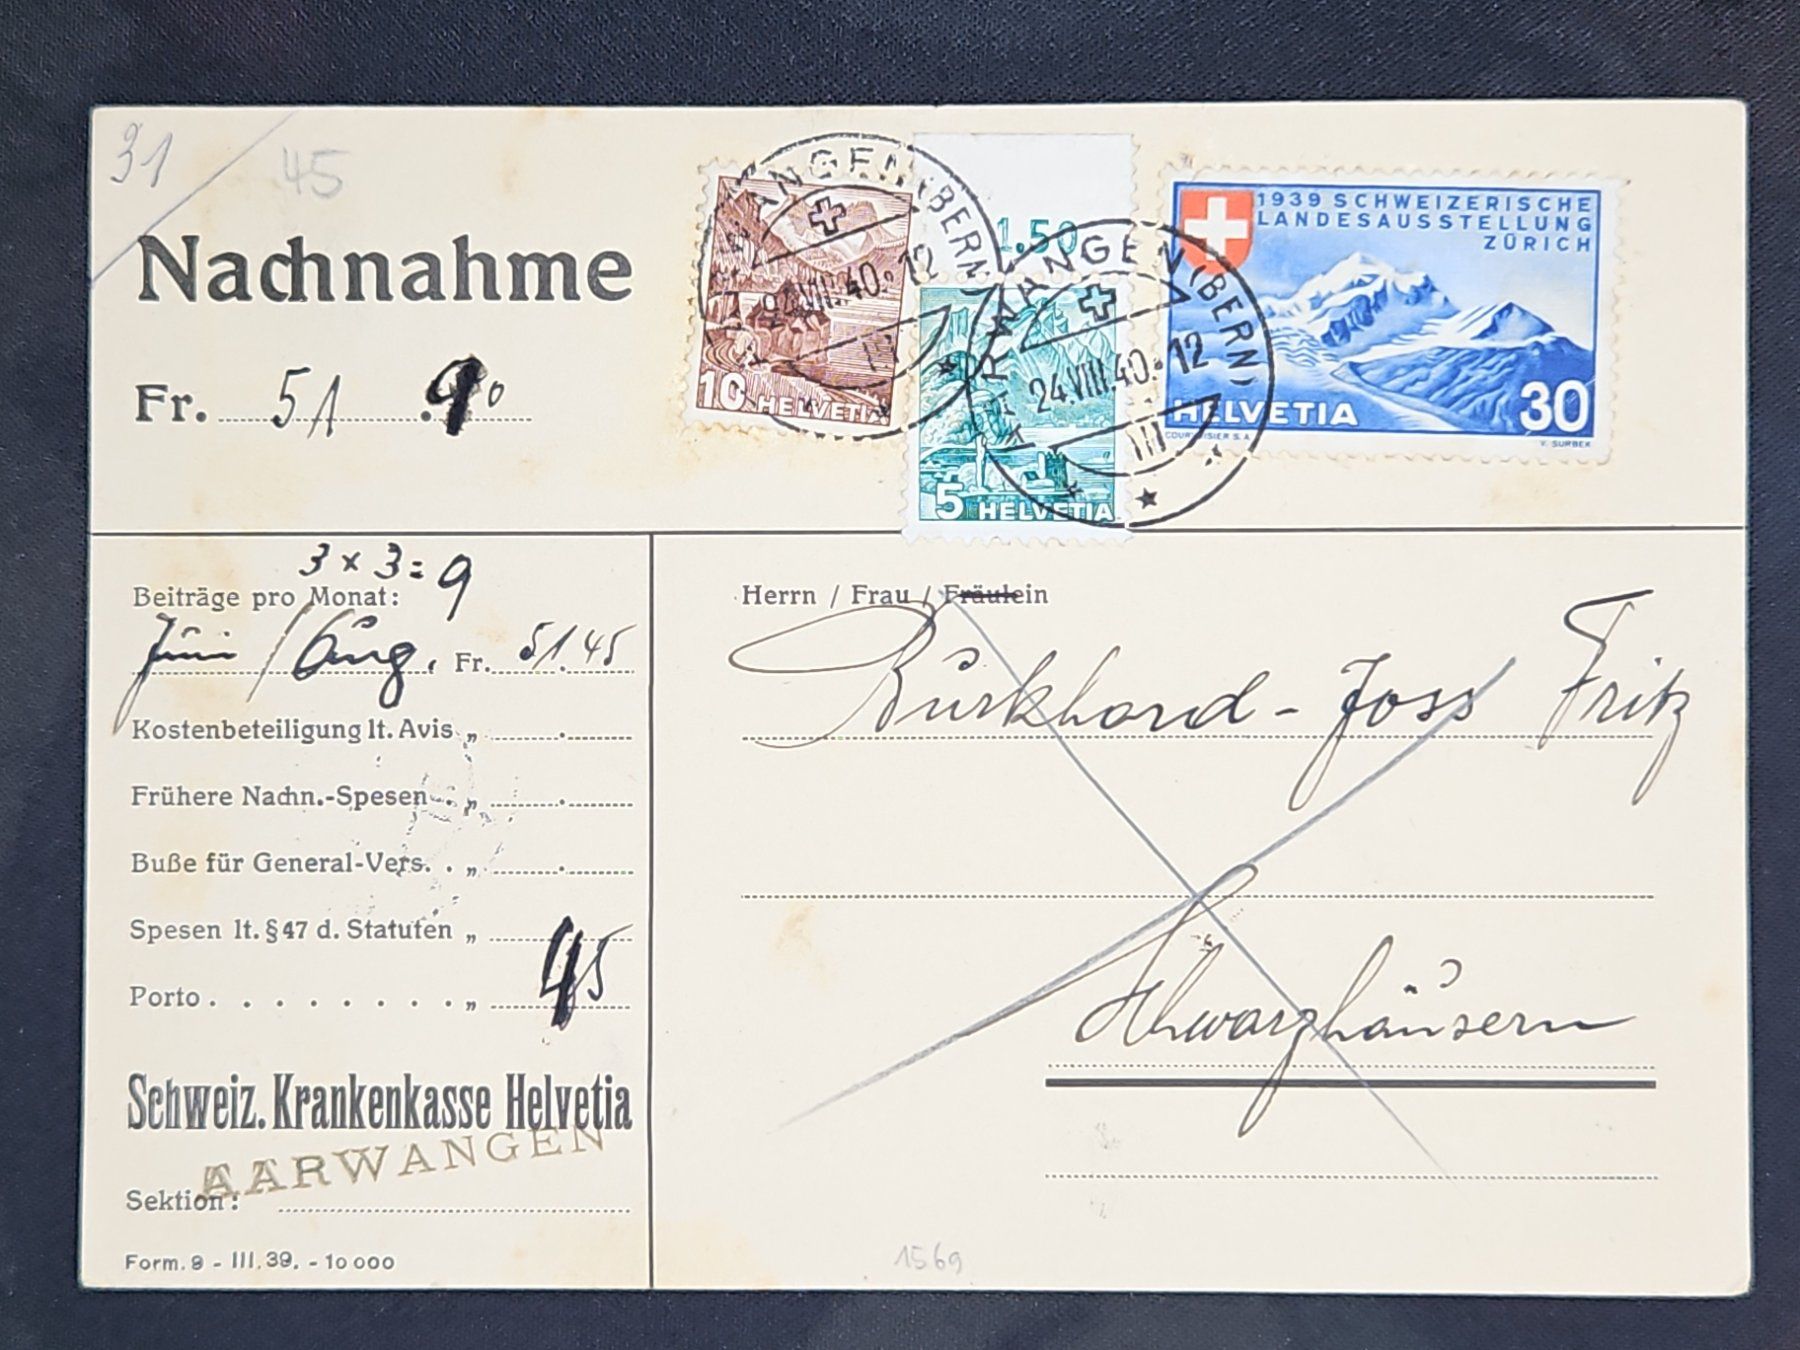 31
45
Nachnahme
Fr. 51.90
AARWANGEN (BERN)
24.VIII.40. 12
10 HELVETIA
1.50
5 HELVETIA
AARWANGEN (BERN)
24.VIII.40. 12
III
1939 SCHWEIZERISCHE
LANDESAUSSTELLUNG
ZÜRICH
HELVETIA 30
COURVOISIER S.A. V. SURBEK
3 x 3 = 9
Beiträge pro Monat:
Juni / Aug. Fr. 51.45
Kostenbeteiligung lt. Avis „
Frühere Nachn.-Spesen . „
Buße für General-Vers. . „
Spesen lt. § 47 d. Statuten „
Porto . . . . . . . . „ 45
Schweiz. Krankenkasse Helvetia
AARWANGEN
Sektion:
Form. 9 - III. 39. - 10 000
Herrn / Frau / Fräulein
Burkhard-Joss Fritz
Schwarzhäusern
1569